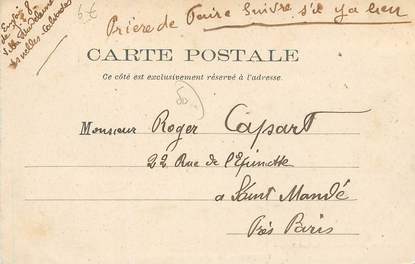 Prière de Faire Suivre s'il y a lieu
CARTE POSTALE
Ce côté est exclusivement réservé à l'adresse.
Monsieur Roger Capart
22 Rue de l'Epinette
a Saint Mandé
Près Paris